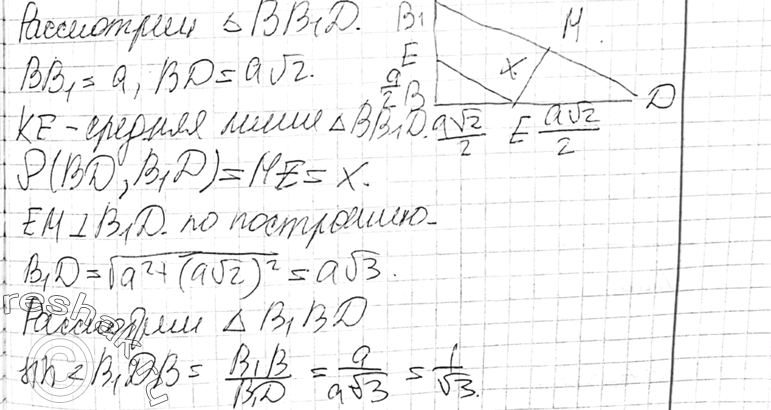 Рассмотрим △ BB₁D.
BB₁ = a, BD = a√2.
KE - средняя линия △ BB₁D.
ρ(BD, B₁D) = ME = x.
EM ⊥ B₁D по построению
B₁D = √(a² + (a√2)²) = a√3.
Рассмотрим △ B₁BD
sin ∠ B₁DB = B₁B/B₁D = a/a√3 = 1/√3.
B₁
M
E
x
a/2
B
D
a√2/2 E a√2/2
reshak.ru